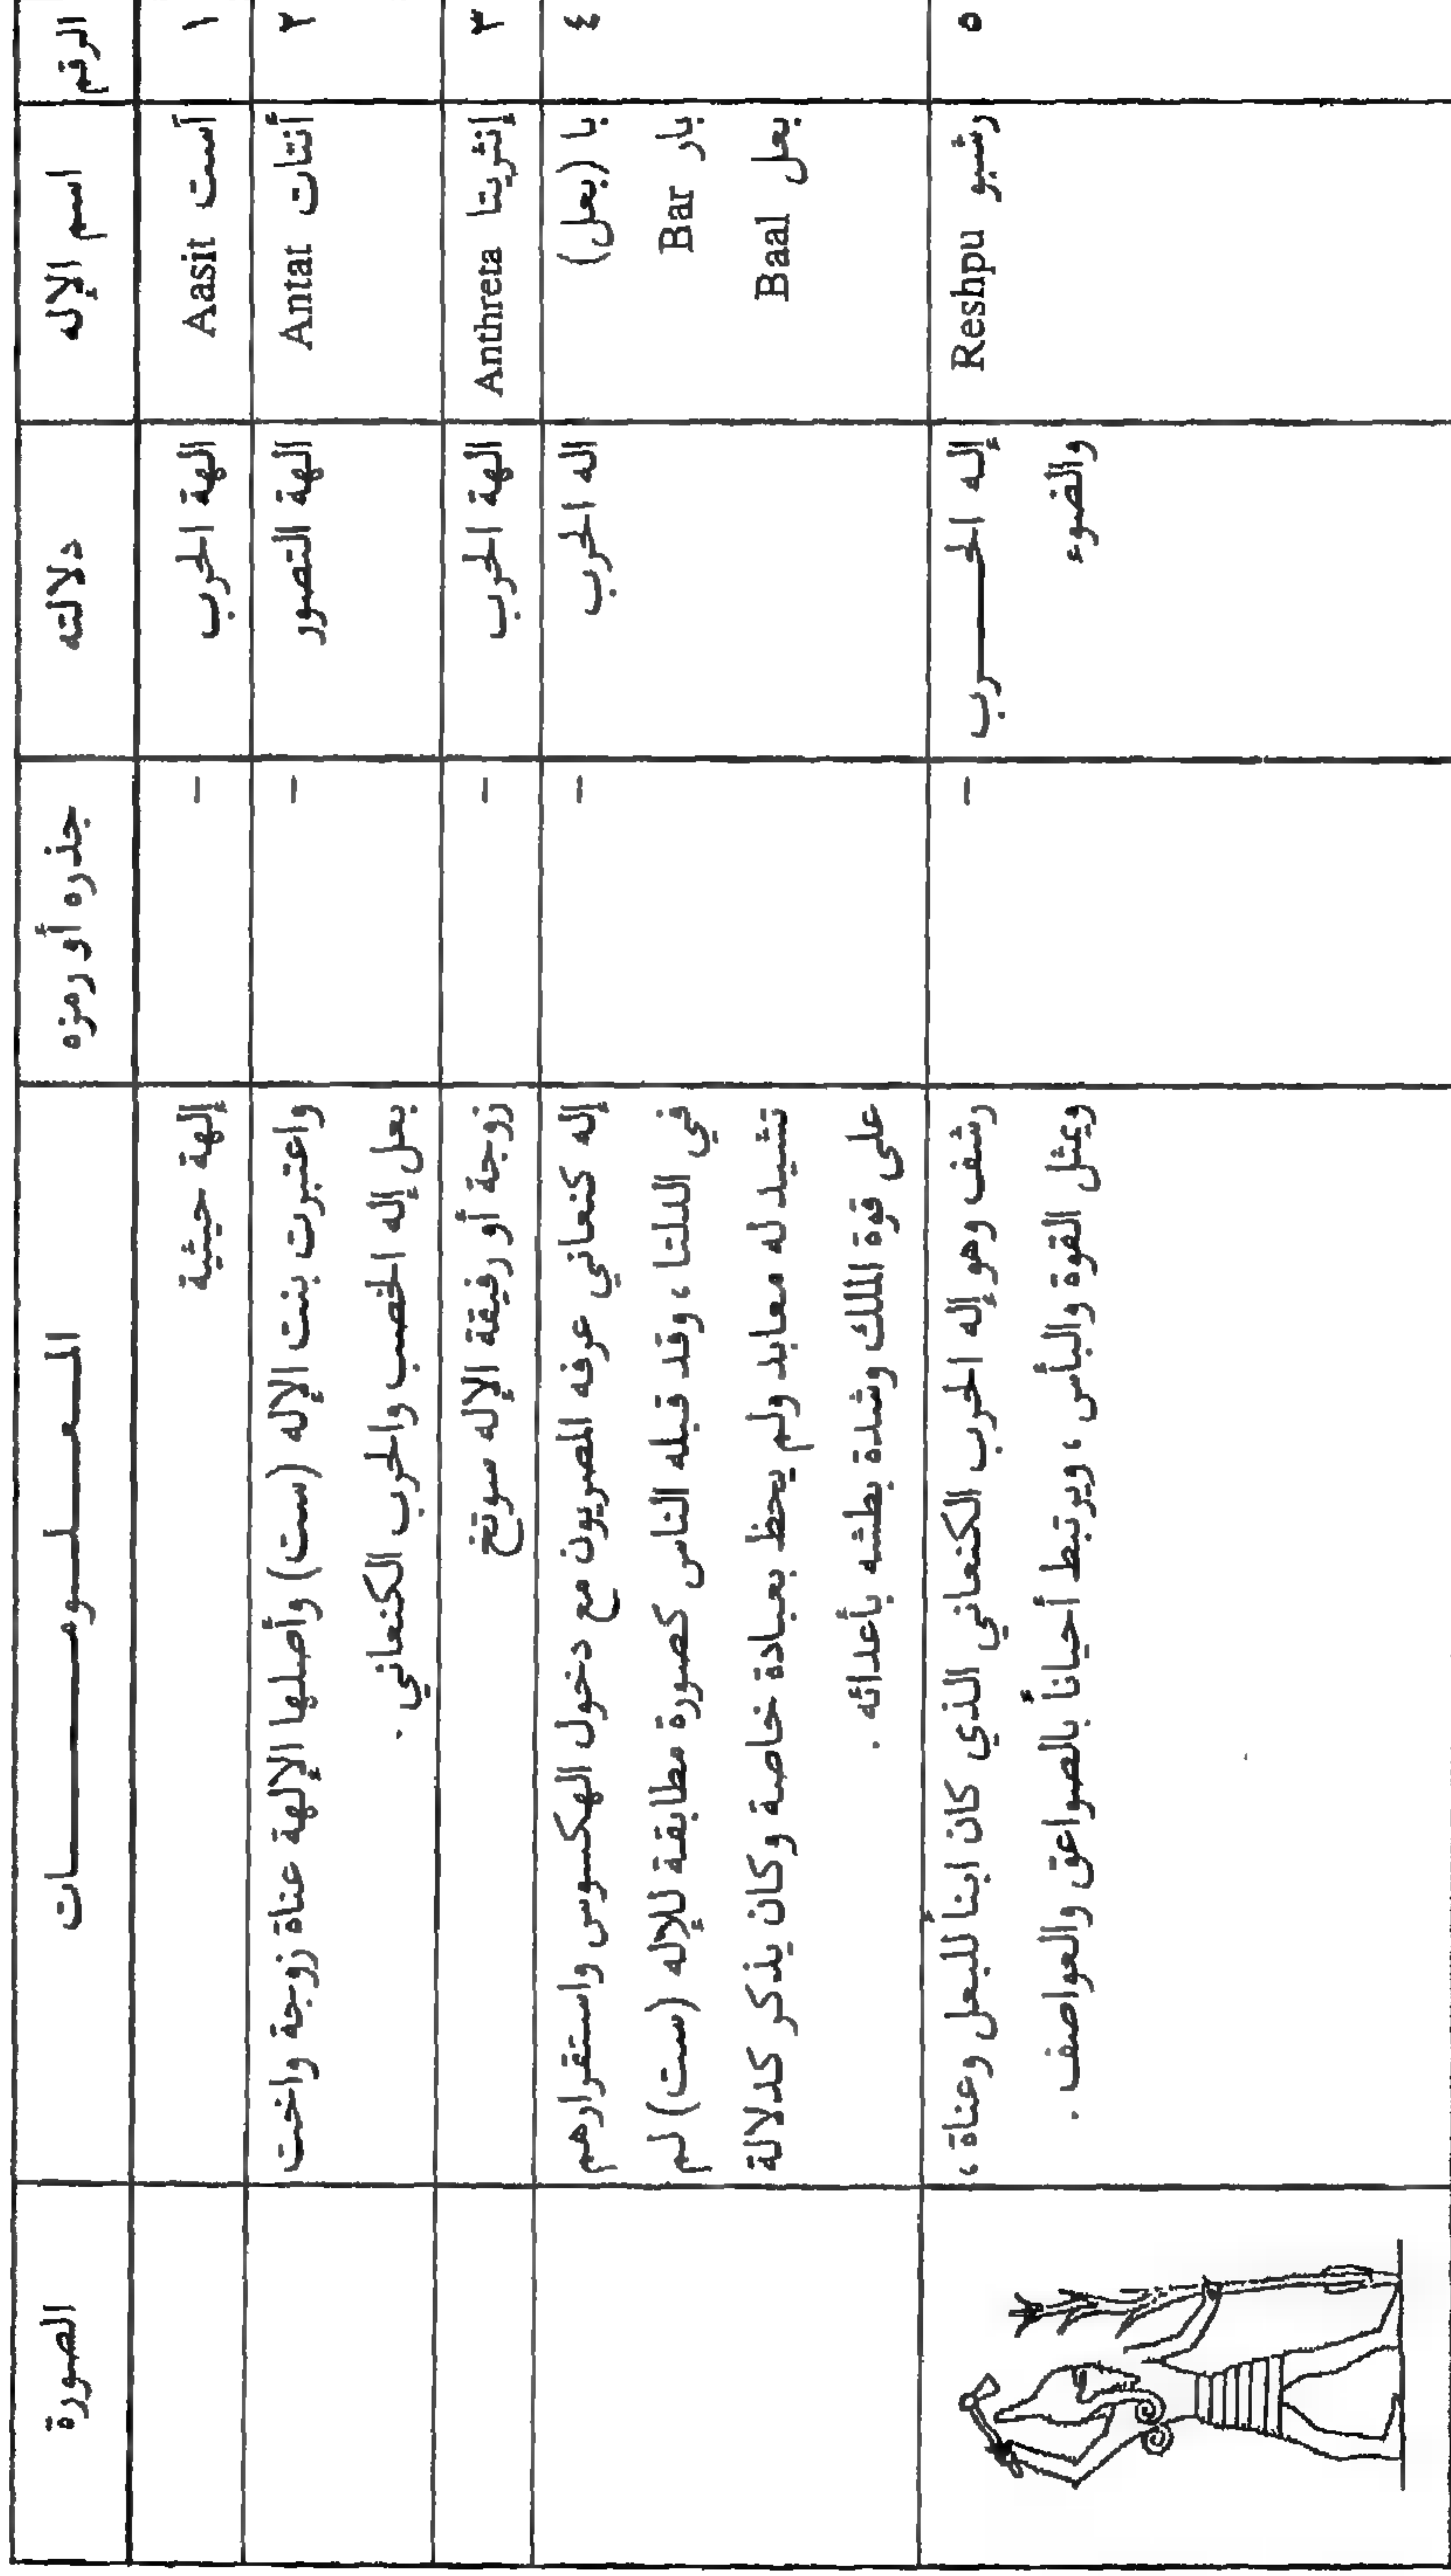 الرقم
اسم الإله
دلالته
جذره أو رمزه
المـعـلـومـــات
الصورة
١
آست Aasit
الهة الحرب
-
إلهة حيثية
٢
أنتات Antat
الهة التصور
-
واعتبرت بنت الإله (ست) وأصلها الإلهة عناة زوجة واخت
بعل إله الخصب والحرب الكنعاني .
٣
إنثريتا Anthreta
الهة الحرب
-
زوجة أو رفيقة الإله سوتخ
٤
با (بعل)
بار Bar
بعل Baal
اله الحرب
-
إله كنعاني عرفه المصريون مع دخول الهكسوس واستقرارهم
في الدلتا ، وقد قبله الناس كصورة مطابقة للإله (ست) لم
تشيد له معابد ولم يحظ بعبادة خاصة وكان يذكر كدلالة
على قوة الملك وشدة بطشه بأعدائه .
٥
رشبو Reshpu
إله الحـــرب
والضوء
-
رشف وهو إله الحرب الكنعاني الذي كان ابناً للبعل وعناة ،
ويمثل القوة والبأس ، ويرتبط أحياناً بالصواعق والعواصف .